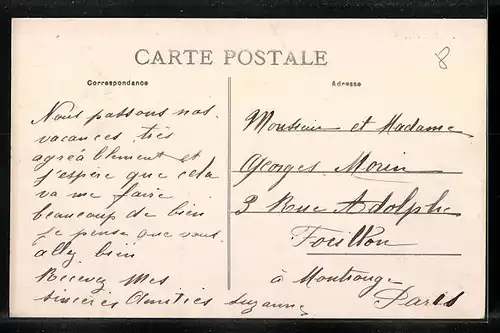 CARTE POSTALE
8
Correspondance
Adresse
Nous passons nos
vacances très
agréablement et
j'espère que cela
va me faire
beaucoup de bien
je pense que vous
allez bien
Recevez mes
sincères Amitiés Suzanne
Monsieur et Madame
Georges Morin
3 Rue Adolphe
Focillon
à Montrouge
Paris